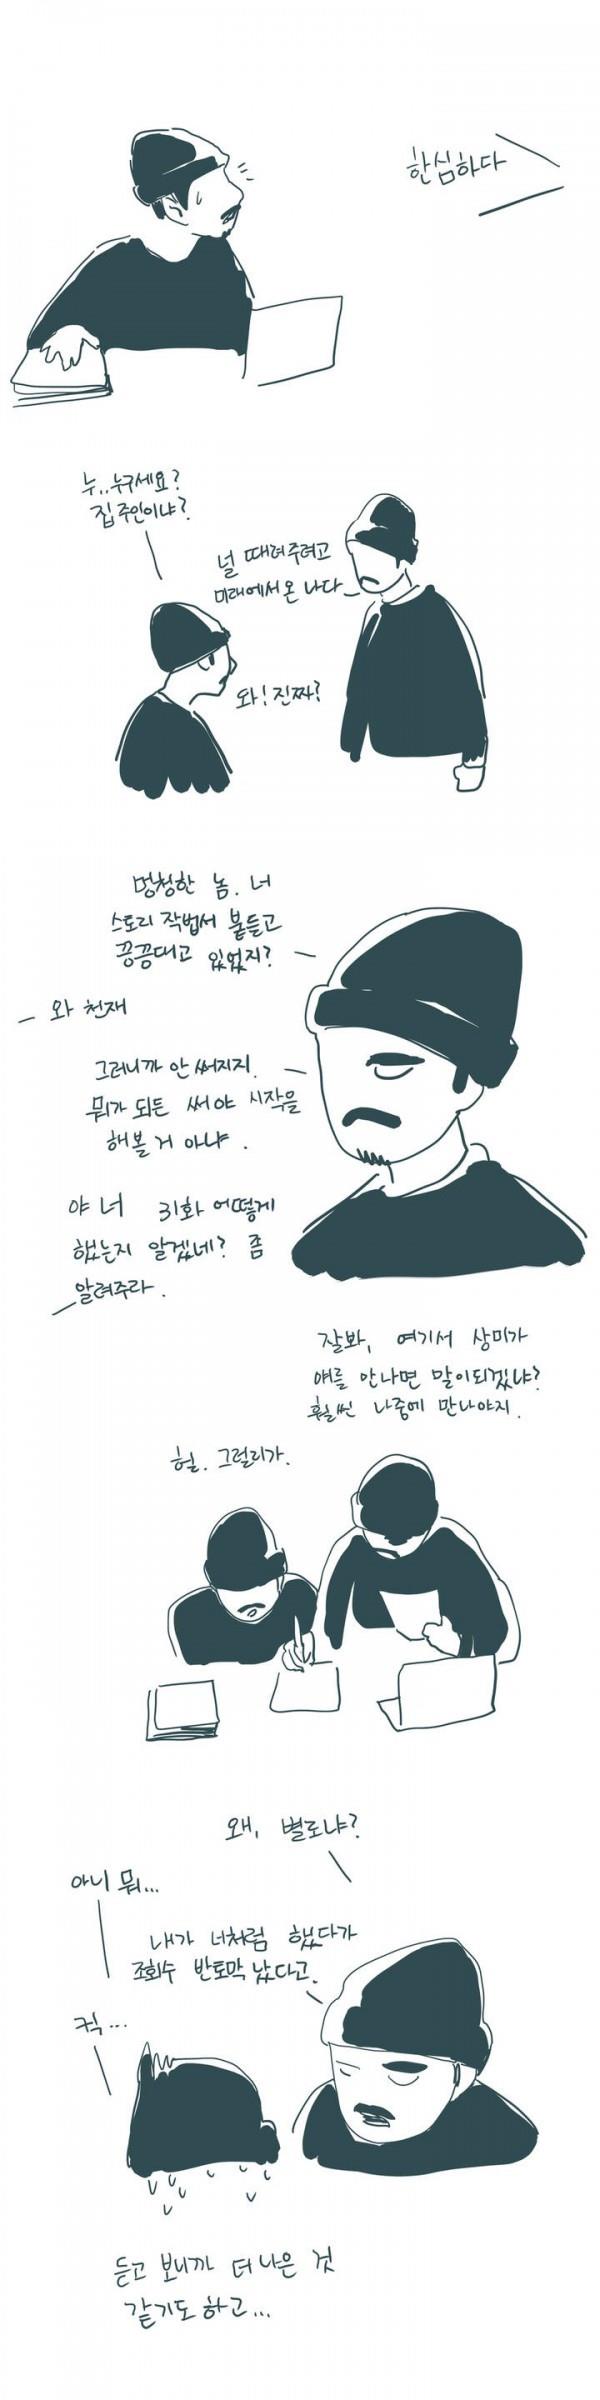 한심하다
누..누구세요?
집주인이냐?
널 때려주려고
미래에서 온 나다
와! 진짜?
멍청한 놈. 너
스토리 작법서 붙들고
끙끙대고 있었지?
와 천재
그러니까 안 써지지.
뭐가 되든 써야 시작을
해볼 거 아냐.
야 너 31화 어떻게
했는지 알겠네? 좀
알려주라.
잘봐, 여기서 상미가
얘를 만나면 말이되겠냐?
훨씬 나중에 만나야지.
헐. 그럴리가.
왜, 별로냐?
아니 뭐...
내가 너처럼 했다가
조회수 반토막 났다고.
컥...
듣고 보니까 더 나은 것
같기도 하고...